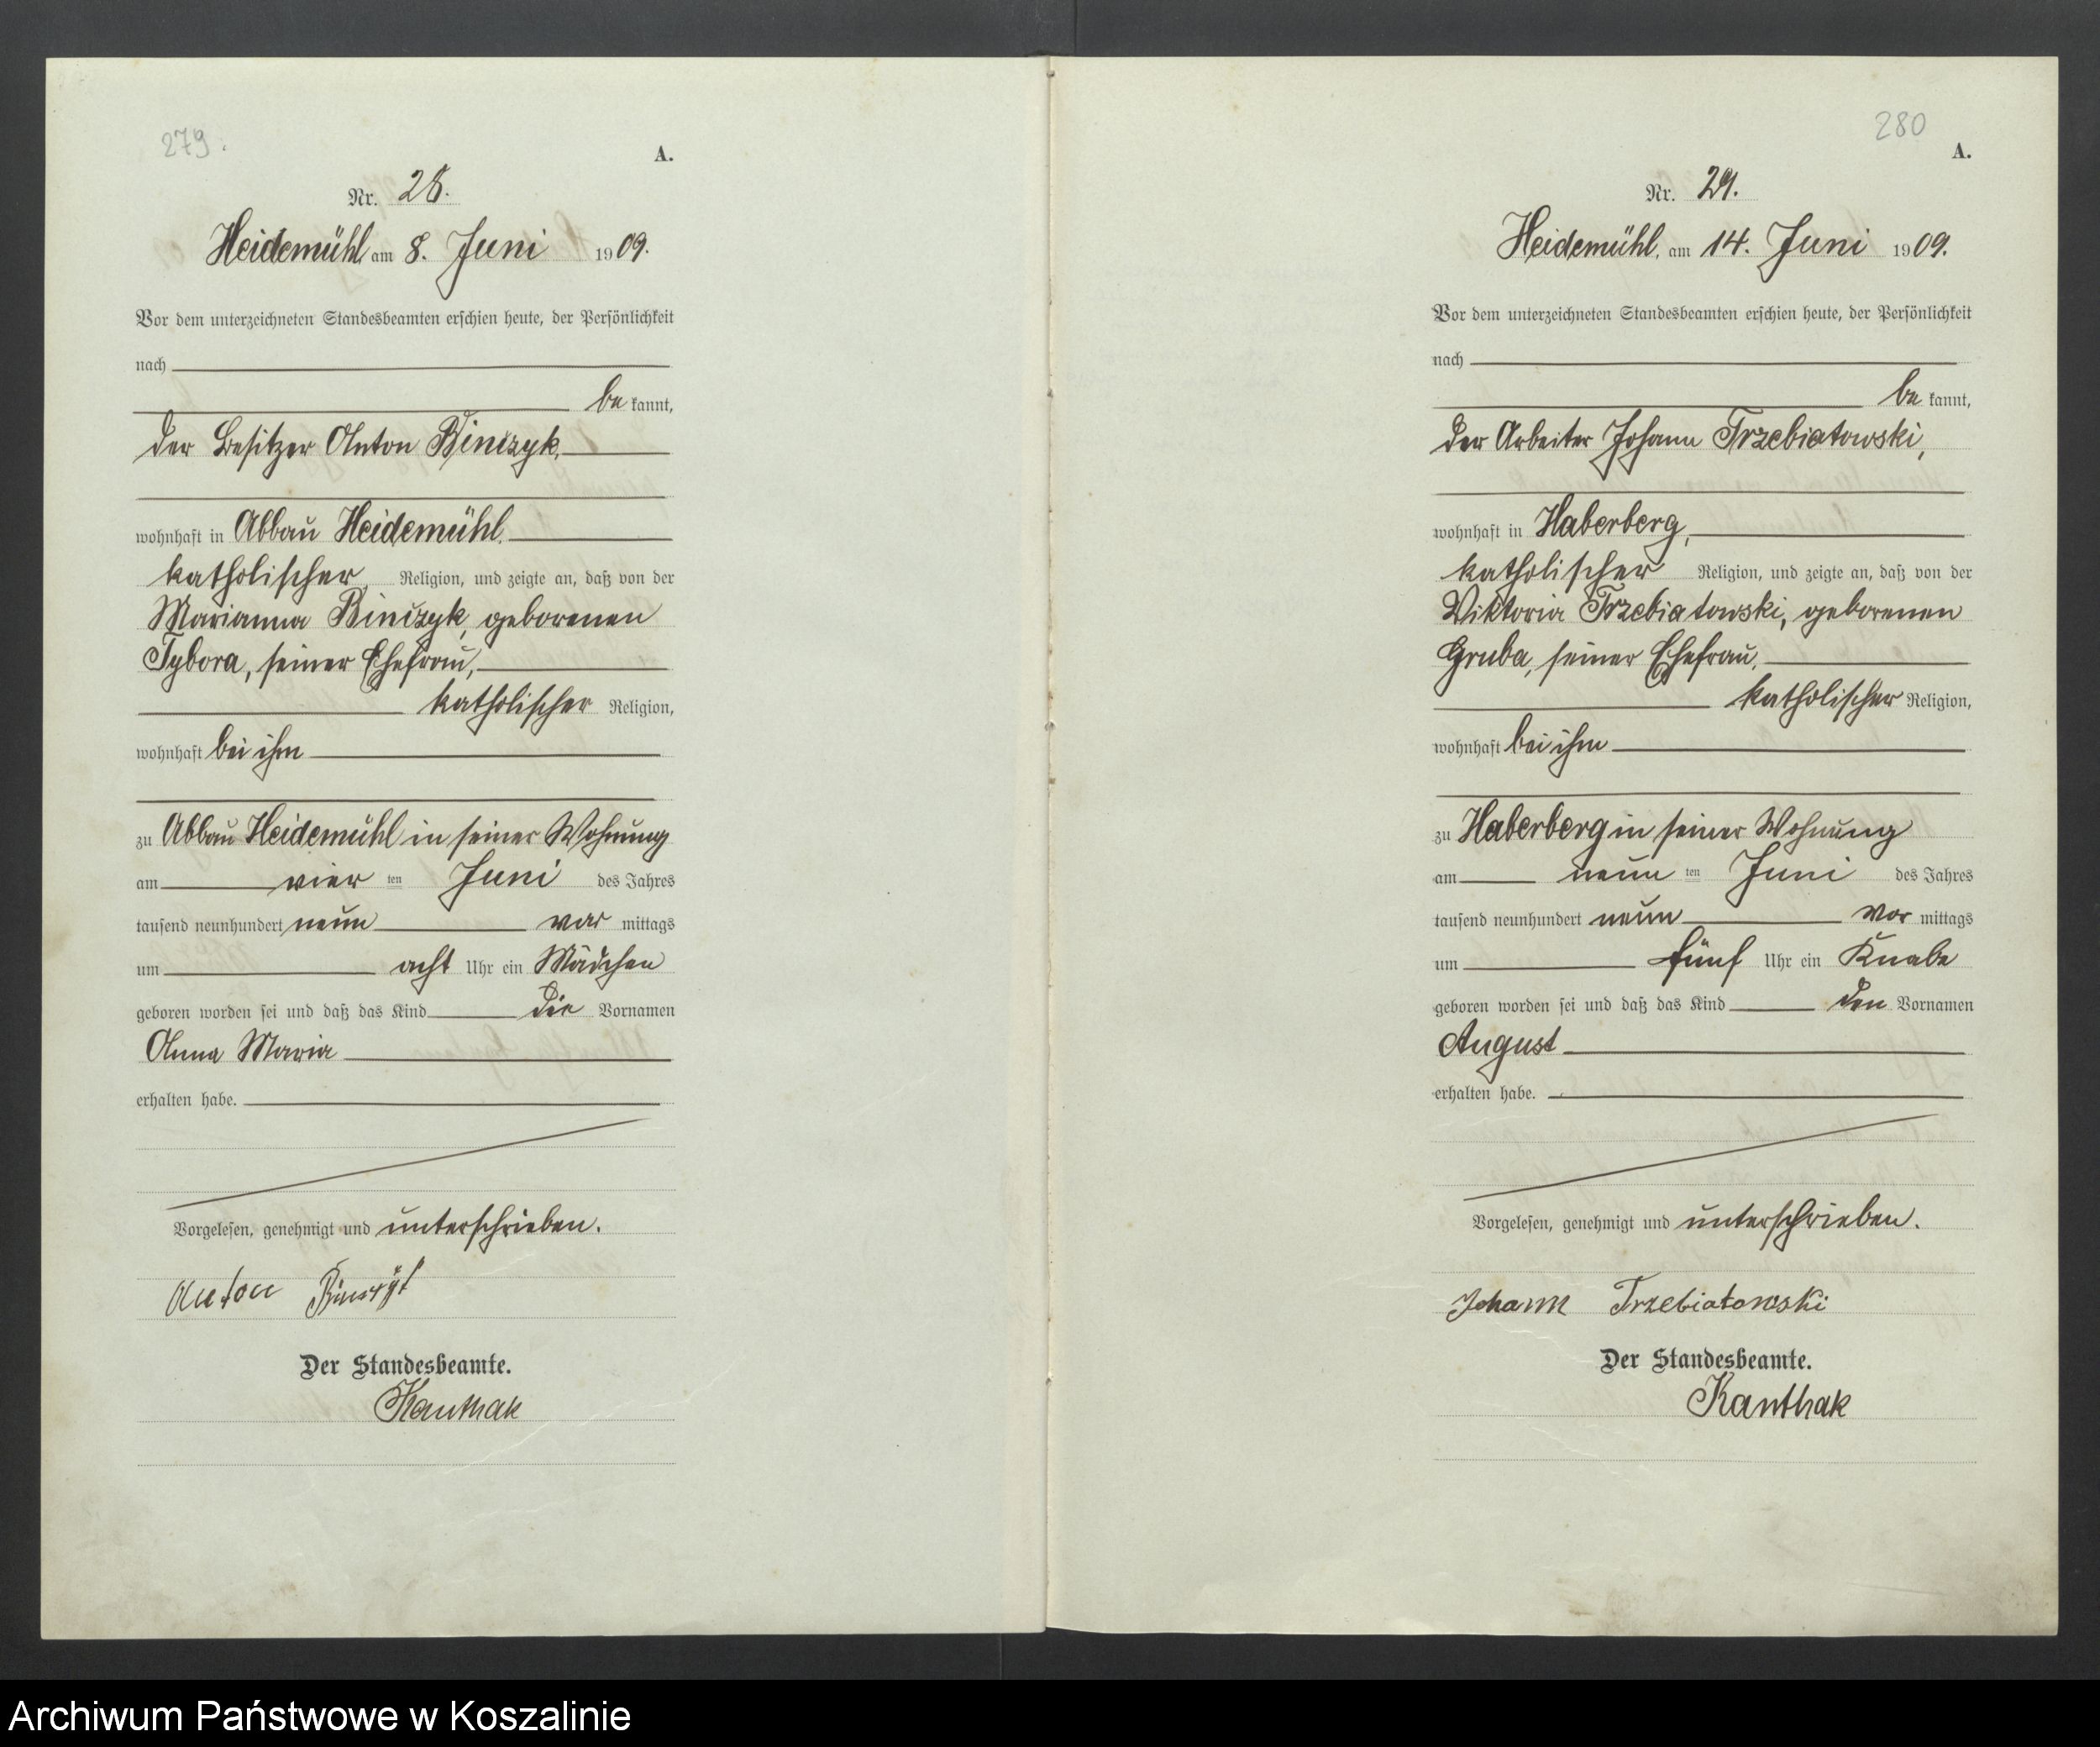 279.
A.
Nr. 28.
Heidemühl, am 8. Juni 1909.
Vor dem unterzeichneten Standesbeamten erschien heute, der Persönlichkeit
nach
be kannt,
der Besitzer Anton Binczyk,
wohnhaft in Abbau Heidemühl,
katholischer Religion, und zeigte an, daß von der
Marianna Binczyk, geborenen
Tybora, seiner Ehefrau,
katholischer Religion,
wohnhaft bei ihm
zu Abbau Heidemühl in seiner Wohnung
am vier ten Juni des Jahres
tausend neunhundert neun vor mittags
um acht Uhr ein Mädchen
geboren worden sei und daß das Kind die Vornamen
Anna Maria
erhalten habe.
Vorgelesen, genehmigt und unterschrieben.
Anton Binczyk
Der Standesbeamte.
Kanthak
280
A.
Nr. 29.
Heidemühl, am 14. Juni 1909.
Vor dem unterzeichneten Standesbeamten erschien heute, der Persönlichkeit
nach
be kannt,
der Arbeiter Johann Trzebiatowski,
wohnhaft in Haberberg,
katholischer Religion, und zeigte an, daß von der
Viktoria Trzebiatowski, geborenen
Gruba, seiner Ehefrau,
katholischer Religion,
wohnhaft bei ihm
zu Haberberg in seiner Wohnung
am neun ten Juni des Jahres
tausend neunhundert neun vor mittags
um fünf Uhr ein Knabe
geboren worden sei und daß das Kind den Vornamen
August
erhalten habe.
Vorgelesen, genehmigt und unterschrieben.
Johann Trzebiatowski
Der Standesbeamte.
Kanthak
Archiwum Państwowe w Koszalinie